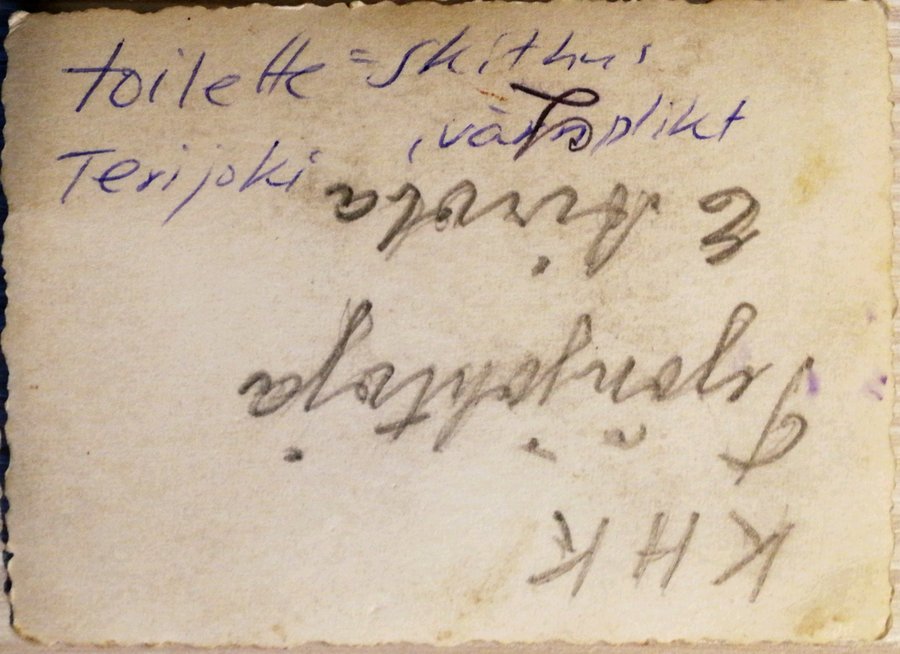 toilette = skithus
, värnplikt
Terijoki
K H K
Työnjohtaja